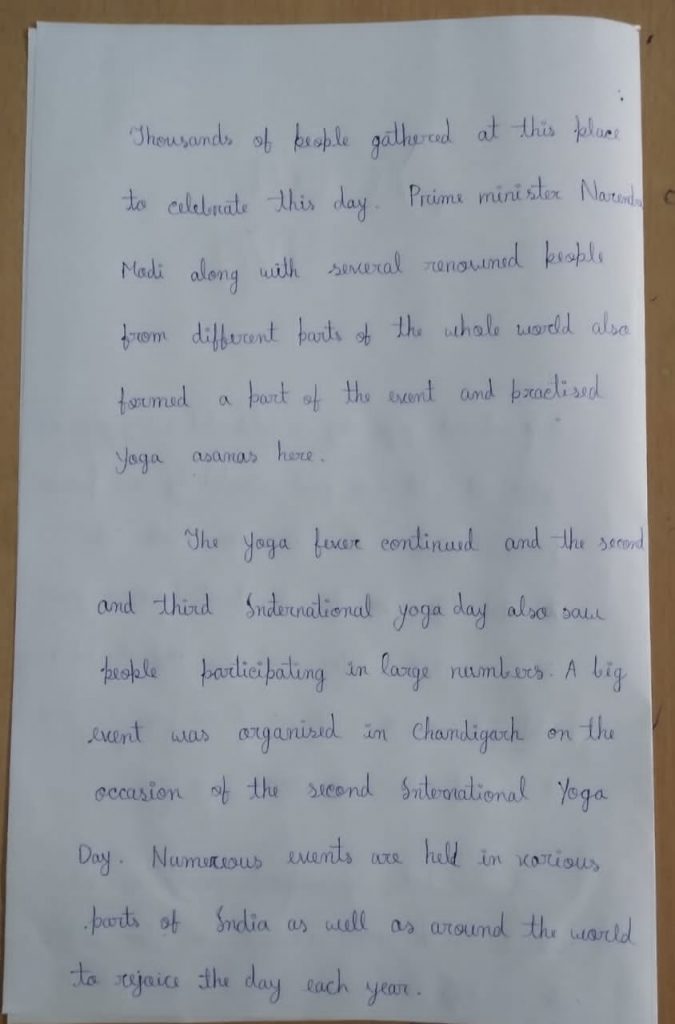 Thousands of people gathered at this place
to celebrate this day. Prime minister Narendra
Modi along with several renowned people
from different parts of the whole world also
formed a part of the event and practised
yoga asanas here.
The yoga fever continued and the second
and third International yoga day also saw
people participating in large numbers. A big
event was organised in Chandigarh on the
occasion of the second International Yoga
Day. Numereous events are held in various
parts of India as well as around the world
to rejoice the day each year.